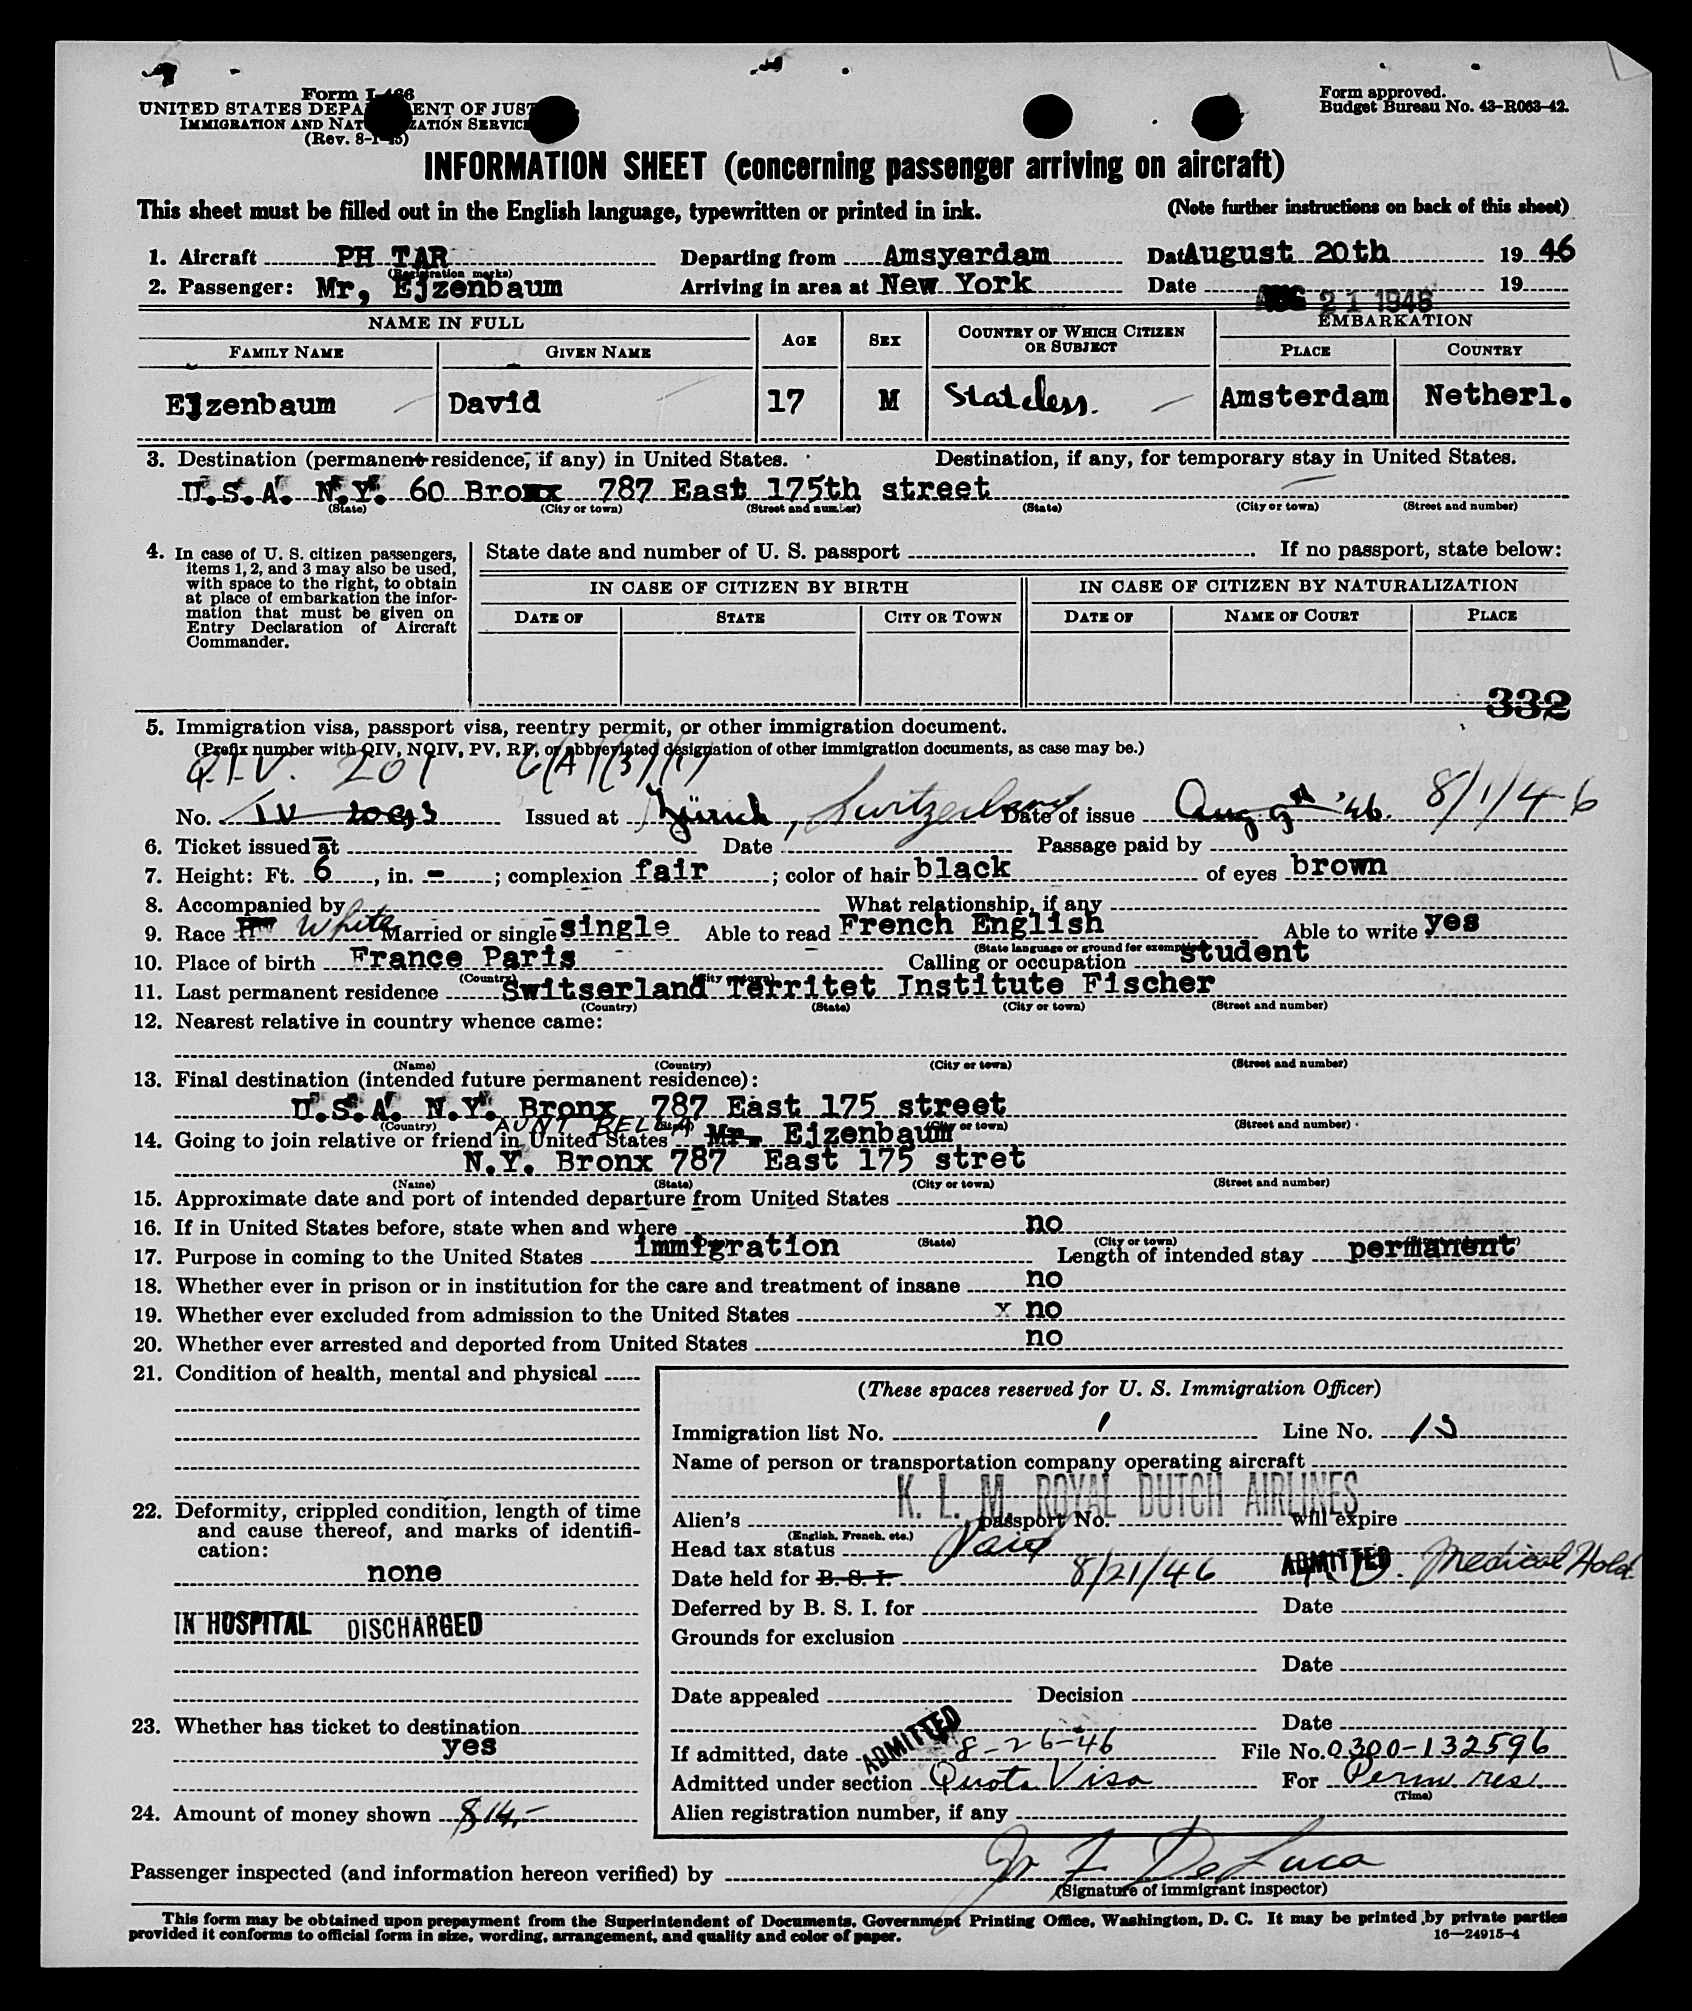 Form I-466
UNITED STATES DEPARTMENT OF JUSTICE
IMMIGRATION AND NATURALIZATION SERVICE
(Rev. 8-1-45)
Form approved.
Budget Bureau No. 43-R063-42.
INFORMATION SHEET (concerning passenger arriving on aircraft)
This sheet must be filled out in the English language, typewritten or printed in ink. (Note further instructions on back of this sheet)
1. Aircraft PH TAR Departing from Amsyerdam Date August 20th 19 46
(Registration marks)
2. Passenger: Mr, Ejzenbaum Arriving in area at New York Date AUG 21 1946 19
NAME IN FULL AGE SEX COUNTRY OF WHICH CITIZEN OR SUBJECT EMBARKATION
FAMILY NAME GIVEN NAME PLACE COUNTRY
Ejzenbaum David 17 M Stateless. Amsterdam Netherl.
3. Destination (permanent residence, if any) in United States. Destination, if any, for temporary stay in United States.
U.S.A. N.Y. 60 Bronx 787 East 175th street
(State) (City or town) (Street and number) (State) (City or town) (Street and number)
4. In case of U. S. citizen passengers, items 1, 2, and 3 may also be used, with space to the right, to obtain at place of embarkation the information that must be given on Entry Declaration of Aircraft Commander.
State date and number of U. S. passport If no passport, state below:
IN CASE OF CITIZEN BY BIRTH IN CASE OF CITIZEN BY NATURALIZATION
DATE OF STATE CITY OR TOWN DATE OF NAME OF COURT PLACE
332
5. Immigration visa, passport visa, reentry permit, or other immigration document.
(Prefix number with QIV, NQIV, PV, RP, or abbreviated designation of other immigration documents, as case may be.)
Q.I.V. 201
No. Issued at Zürich, Switzerland Date of issue Aug 9th '46. 8/1/46
6. Ticket issued at Date Passage paid by
7. Height: Ft. 6, in. -; complexion fair; color of hair black of eyes brown
8. Accompanied by What relationship, if any
9. Race White Married or single single Able to read French English Able to write yes
(State language or ground for exemption)
10. Place of birth France Paris Calling or occupation student
(Country) (City or town)
11. Last permanent residence Switserland Territet Institute Fischer
(Country) (State) (City or town) (Street and number)
12. Nearest relative in country whence came:
(Name) (Country) (City or town) (Street and number)
13. Final destination (intended future permanent residence):
U.S.A. N.Y. Bronx 787 East 175 street
(Country) (State) (City or town) (Street and number)
AUNT BELLA
14. Going to join relative or friend in United States Mr. Ejzenbaum
N.Y. Bronx 787 East 175 stret
(Name) (State) (City or town) (Street and number)
15. Approximate date and port of intended departure from United States
16. If in United States before, state when and where no
(State) (City or town)
17. Purpose in coming to the United States immigration Length of intended stay permanent
18. Whether ever in prison or in institution for the care and treatment of insane no
19. Whether ever excluded from admission to the United States x no
20. Whether ever arrested and deported from United States no
21. Condition of health, mental and physical
22. Deformity, crippled condition, length of time and cause thereof, and marks of identification:
none
IN HOSPITAL DISCHARGED
23. Whether has ticket to destination
yes
24. Amount of money shown $14,-
(These spaces reserved for U. S. Immigration Officer)
Immigration list No. 1 Line No. 15
Name of person or transportation company operating aircraft
K. L. M. ROYAL DUTCH AIRLINES
Alien's passport No. will expire
(English, French, etc.)
Head tax status Paid
Date held for B. S. I. 8/21/46 ADMITTED Medical Hold
Deferred by B. S. I. for Date
Grounds for exclusion
Date
Date appealed Decision
Date
If admitted, date ADMITTED 8-26-46 File No. 0300-132596
Admitted under section Quota Visa For Perm res.
(Time)
Alien registration number, if any
Passenger inspected (and information hereon verified) by De Luca
(Signature of immigrant inspector)
This form may be obtained upon prepayment from the Superintendent of Documents, Government Printing Office, Washington, D. C. It may be printed by private parties
provided it conforms to official form in size, wording, arrangement, and quality and color of paper. 16—24915-4